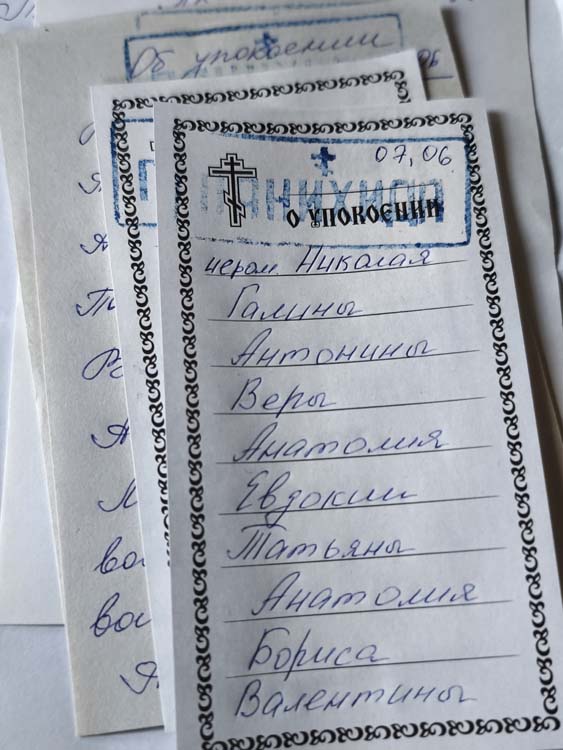 Об упокоении
07.06
ПАНИХИДА
О УПОКОЕНИИ
иером Николая
Галины
Антонины
Веры
Анатолия
Евдокии
Татьяны
Анатолия
Бориса
Валентины